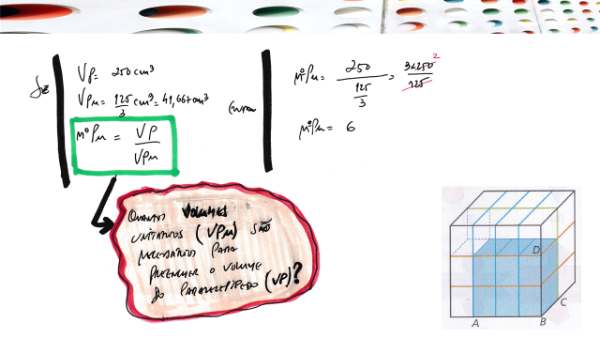 Se
Vp = 250cm³
Vpu = 125/3 cm³ = 41,667cm³
nº Pu = Vp/Vpu
Então
nº Pu = 250/(125/3) = 3x250/125 2
nº Pu = 6
Quantos VOLUMES
unitários (VPu) são
necessários para
preencher o volume
do paralelepípedo (VP)?
D
C
A
B